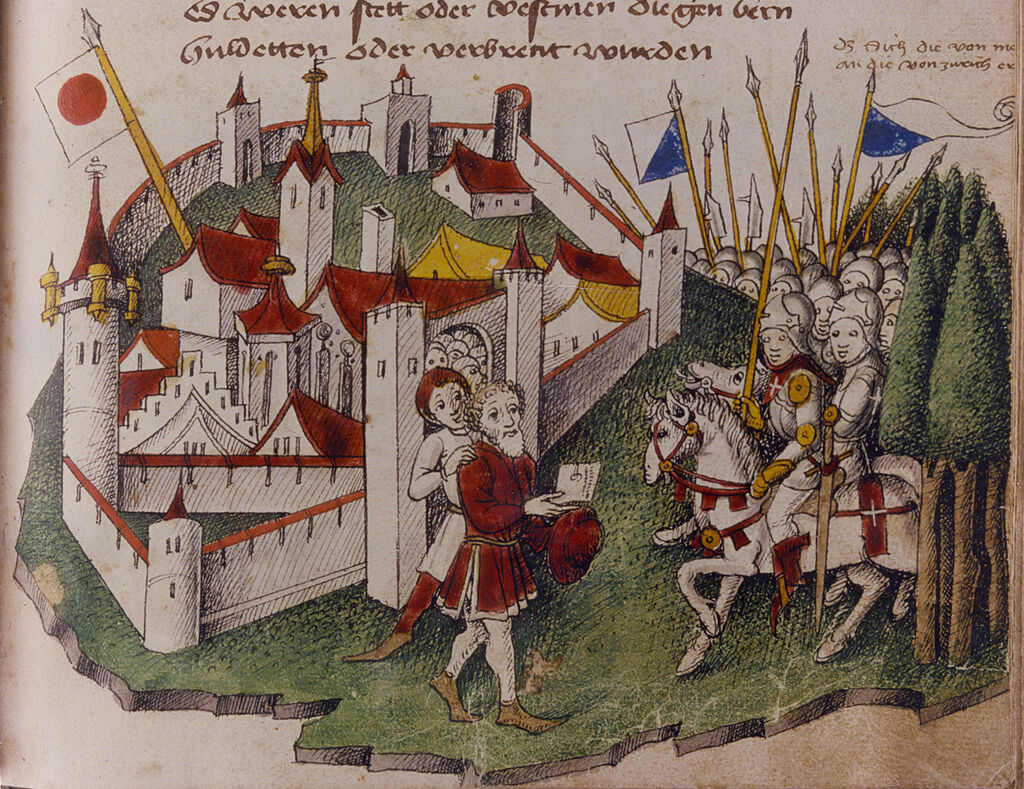 es weren stett oder vestinen die gen bern
huldetten oder verbrent wurden
dz sich die von
an die von zürich er